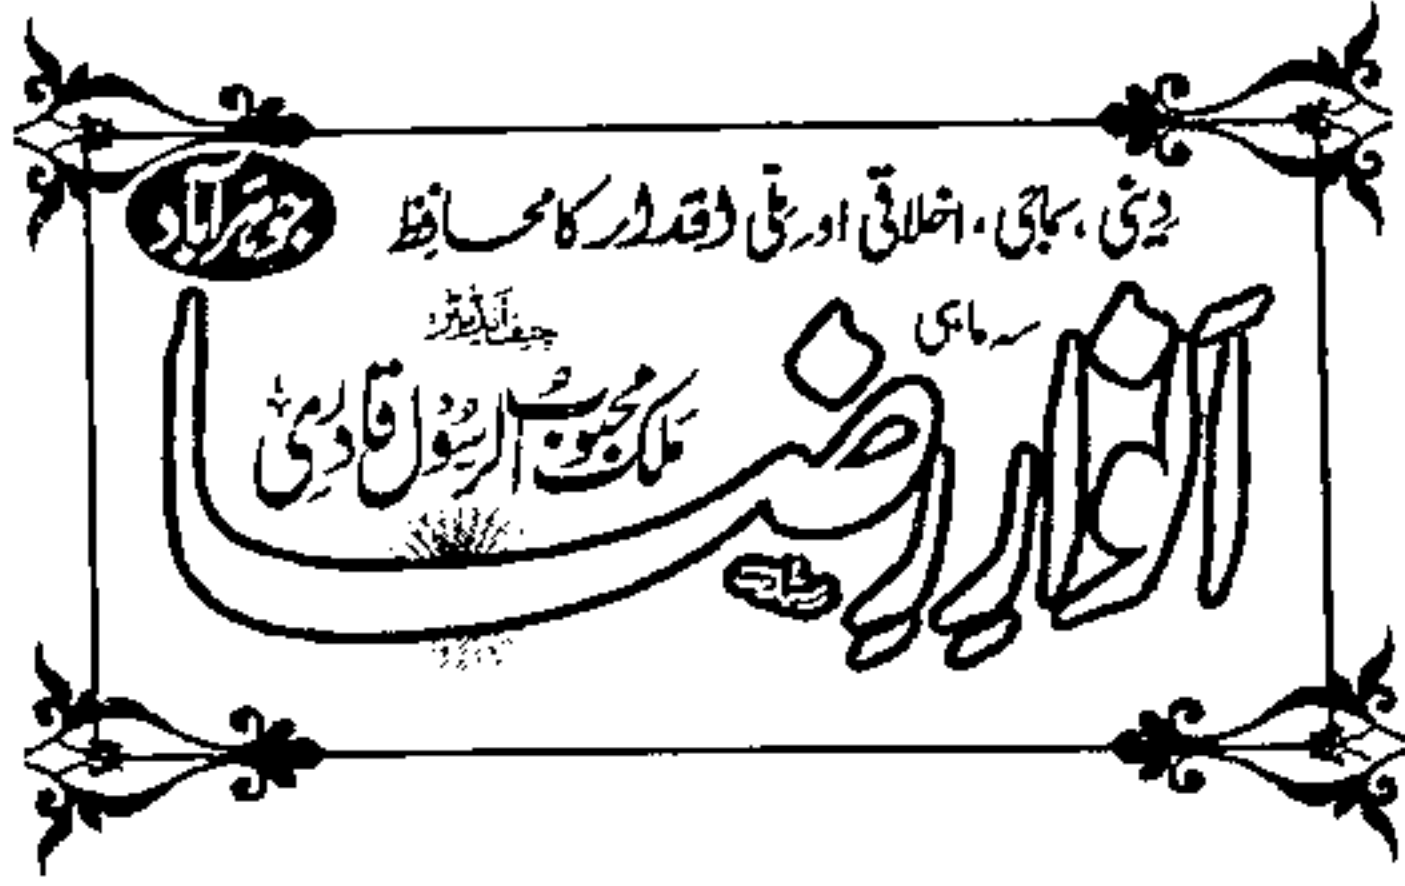 دینی ، سماجی ، اخلاقی اور ملی اقدار کا محافظ
جوہرآباد
سہ ماہی
انوار رضا
چیف ایڈیٹر
ملک محبوب الرسول قادری